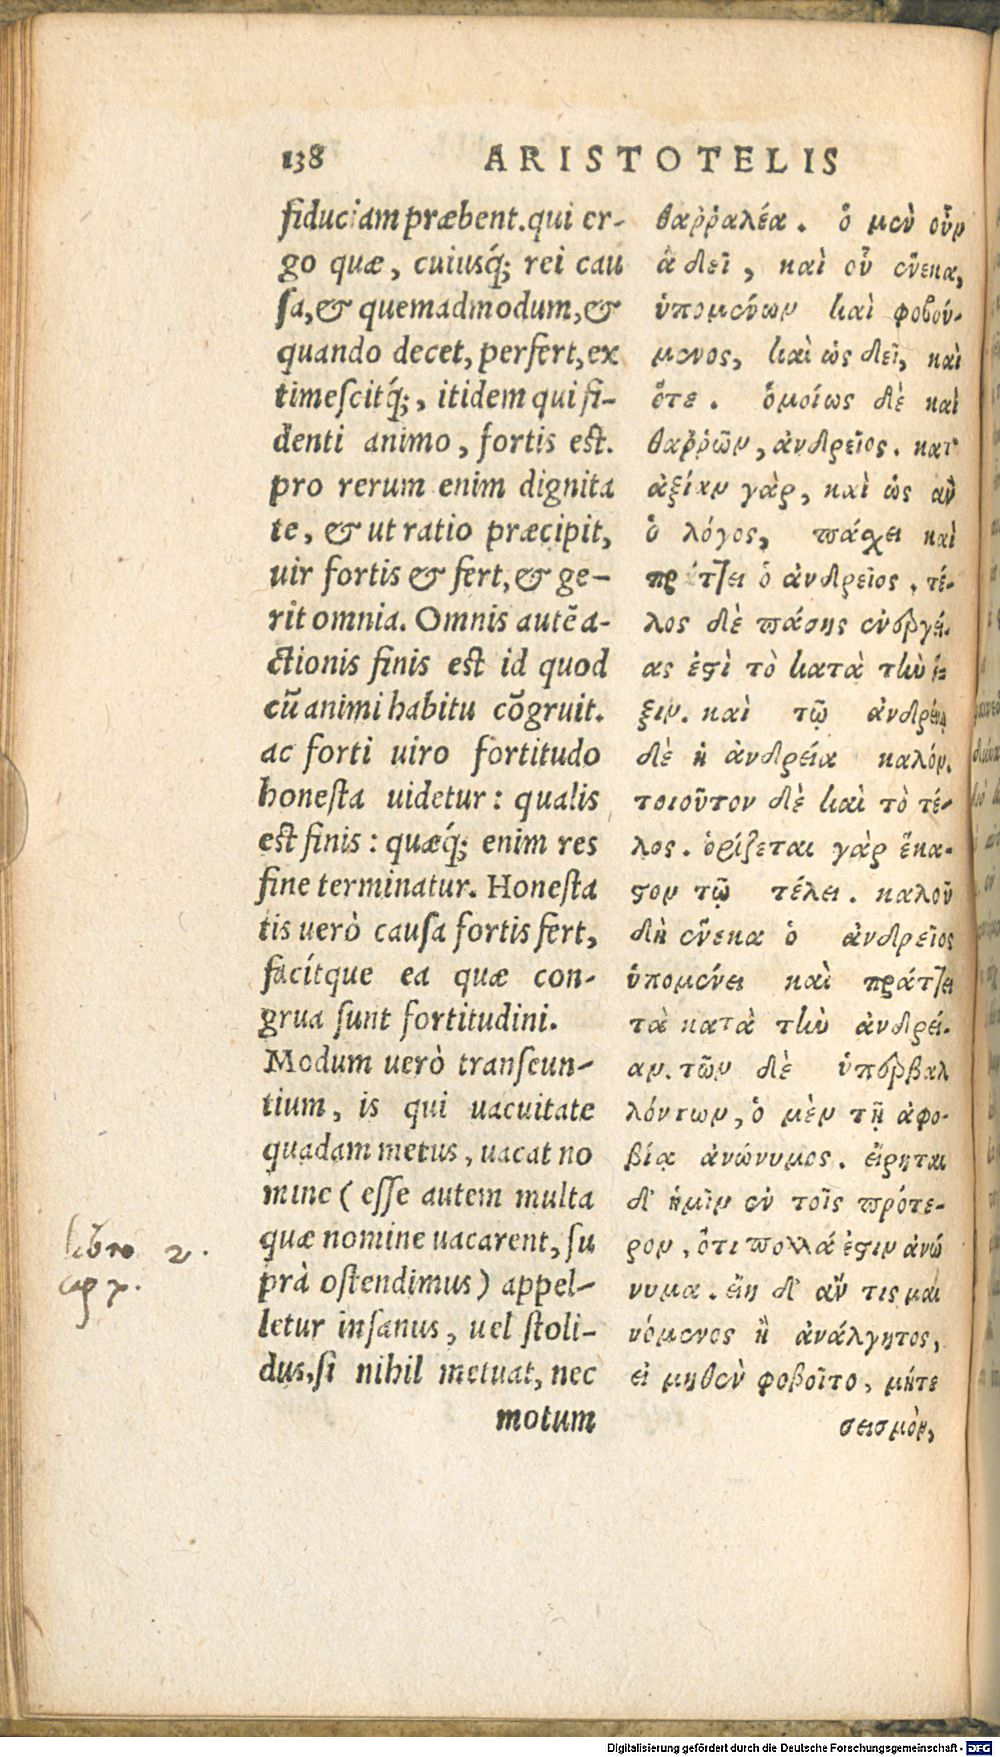 138 ARISTOTELIS
fiduciam præbent. qui er-
go quæ, cuiusq́; rei cau
sa, & quemadmodum, &
quando decet, perfert, ex
timescitq́;, itidem qui fi-
denti animo, fortis est.
pro rerum enim dignita
te, & ut ratio præcipit,
uir fortis & fert, & ge-
rit omnia. Omnis autē a-
ctionis finis est id quod
cū animi habitu cōgruit.
ac forti uiro fortitudo
honesta uidetur: qualis
est finis: quæq́; enim res
fine terminatur. Honesta
tis uerò causa fortis fert,
facítque ea quæ con-
grua sunt fortitudini.
Modum uerò transeun-
tium, is qui uacuitate
quadam metus, uacat no
mine (esse autem multa
quæ nomine uacarent, su
prà ostendimus) appel-
letur insanus, uel stoli-
dus, si nihil metuat, nec
motum
θαῤῥαλέα. ὁ μὲν οὖν
ἃ δεῖ, καὶ οὗ ἕνεκα,
ὑπομένων καὶ φοβού-
μενος, καὶ ὡς δεῖ, καὶ
ὅτε. ὁμοίως δὲ καὶ
θαῤῥῶν, ἀνδρεῖος. κατ'
ἀξίαν γὰρ, καὶ ὡς ἂν
ὁ λόγος, πάσχει καὶ
πράττει ὁ ἀνδρεῖος. τέ-
λος δὲ πάσης ἐνεργεί-
ας ἐστὶ τὸ κατὰ τὴν ἕ-
ξιν. καὶ τῷ ἀνδρείῳ
δὲ ἡ ἀνδρεία καλόν.
τοιοῦτον δὲ καὶ τὸ τέ-
λος. ὁρίζεται γὰρ ἕκα-
στον τῷ τέλει. καλοῦ
δὴ ἕνεκα ὁ ἀνδρεῖος
ὑπομένει καὶ πράττει
τὰ κατὰ τὴν ἀνδρεί-
αν. τῶν δὲ ὑπερβαλ
λόντων, ὁ μὲν τῇ ἀφο-
βίᾳ ἀνώνυμος. εἴρηται
δ' ἡμῖν ἐν τοῖς πρότε-
ρον, ὅτι πολλά ἐστιν ἀνώ
νυμα. εἴη δ' ἄν τις μαι
νόμενος ἢ ἀνάλγητος,
εἰ μηθὲν φοβοῖτο, μήτε
σεισμὸν,
libro 2.
cap 7.
Digitalisierung gefördert durch die Deutsche Forschungsgemeinschaft - DFG